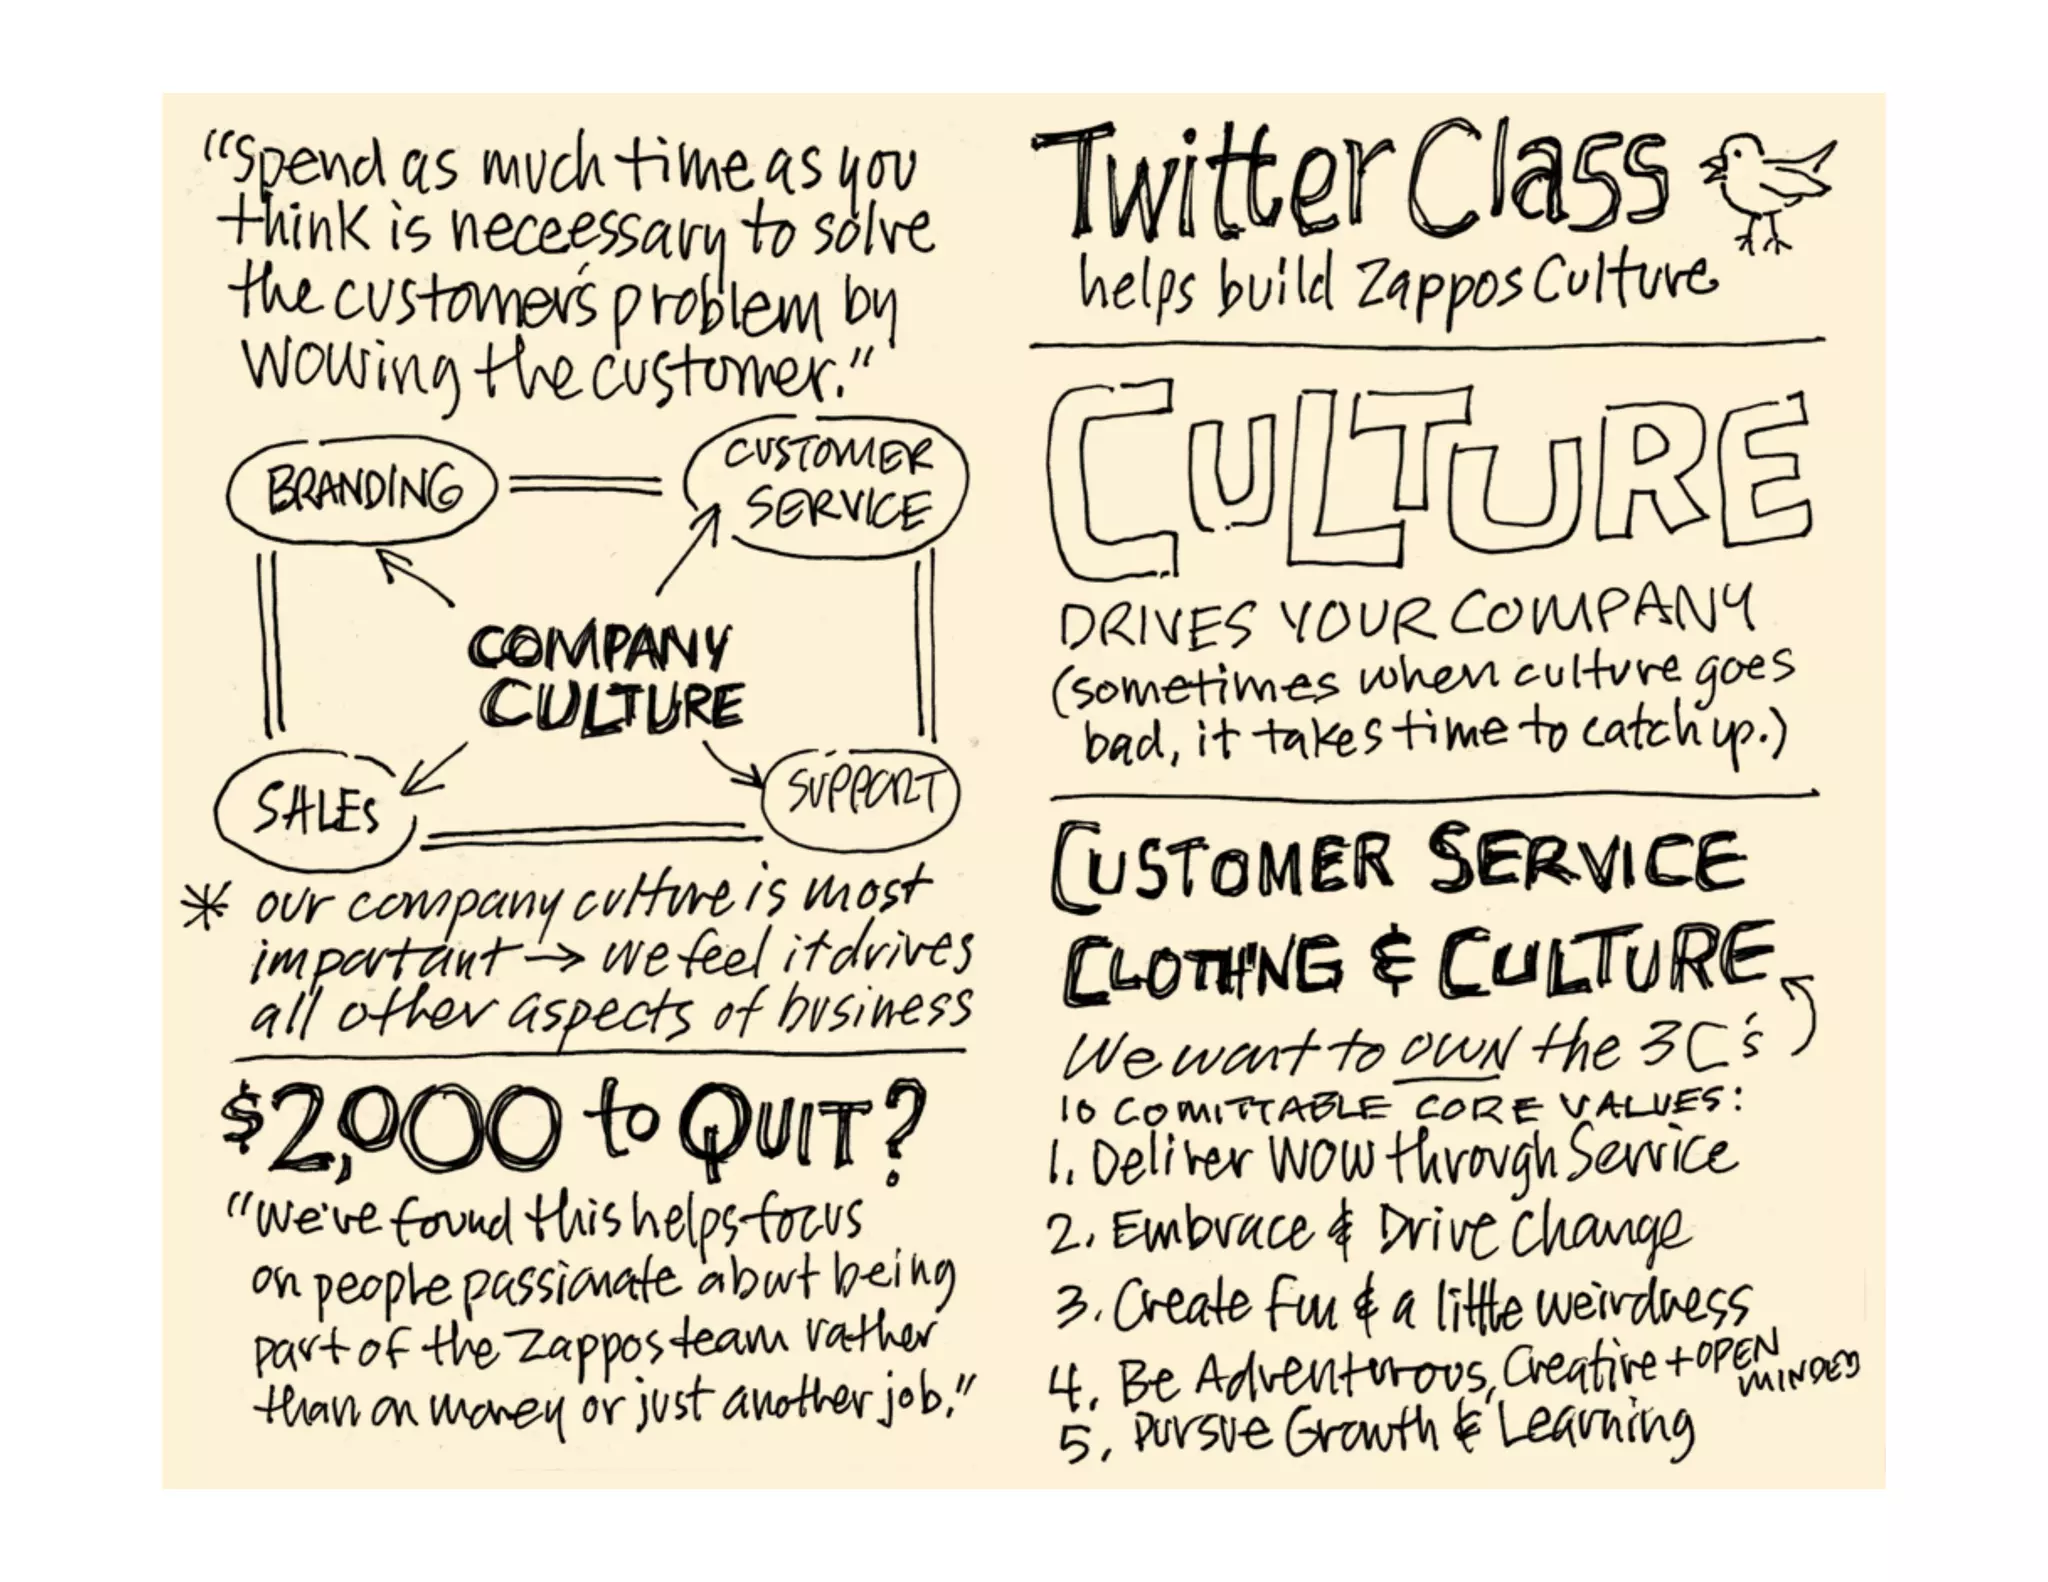 "Spend as much time as you
think is neceessary to solve
the customer's problem by
WOWing the customer."
BRANDING
CUSTOMER
SERVICE
COMPANY
CULTURE
SALES
SUPPORT
* our company culture is most
important → we feel it drives
all other aspects of business
$2,000 to QUIT?
"We've found this helps focus
on people passionate about being
part of the Zappos team rather
than on money or just another job."
Twitter Class
helps build Zappos Culture
CULTURE
DRIVES YOUR COMPANY
(sometimes when culture goes
bad, it takes time to catch up.)
CUSTOMER SERVICE
CLOTHING & CULTURE
We want to OWN the 3C's
10 COMITTABLE CORE VALUES:
1. Deliver WOW through Service
2. Embrace & Drive Change
3. Create fun & a little weirdness
4. Be Adventurous, Creative + OPEN
MINDED
5. Pursue Growth & Learning